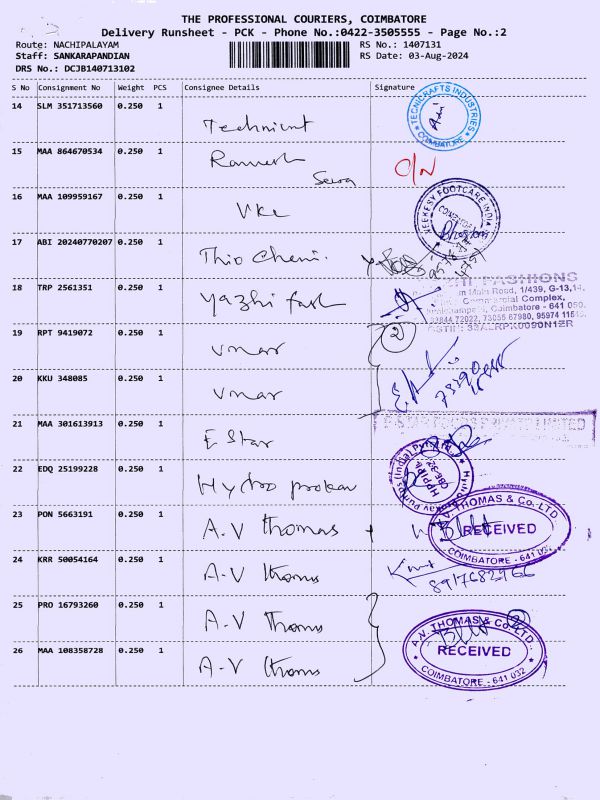 THE PROFESSIONAL COURIERS, COIMBATORE
Delivery Runsheet - PCK - Phone No.:0422-3505555 - Page No.:2
Route: NACHIPALAYAM RS No.: 1407131
Staff: SANKARAPANDIAN RS Date: 03-Aug-2024
DRS No.: DCJB140713102
S No Consignment No Weight PCS Consignee Details Signature
14 SLM 351713560 0.250 1
TECNICRAFTS INDUSTRIES
COIMBATORE
15 MAA 864670534 0.250 1
Ramesh
16 MAA 109959167 0.250 1
VKC
VEEKESY FOOTCARE INDIA
17 ABI 20240770207 0.250 1
18 TRP 2561351 0.250 1
Yazhi
FASHIONS
Main Road, 1/439, G-13,14,
Commercial Complex,
Coimbatore - 641 050.
72022, 73055 67980, 95974
19 RPT 9419072 0.250 1
vmar
2
20 KKU 348085 0.250 1
vmar
21 MAA 301613913 0.250 1
E Star
PRIVATE LIMITED
22 EDQ 25199228 0.250 1
Hydro prokav
Hydro Prokav Pumps (India) Pvt. Ltd.
HPPIPL
CBE-32
23 PON 5663191 0.250 1
A.V thomas
A.V. THOMAS & Co. LTD.
RECEIVED
COIMBATORE - 641 032
24 KRR 50054164 0.250 1
A.V thomas
8917682966
25 PRO 16793260 0.250 1
A.V thomas
A.V. THOMAS & Co. LTD.
RECEIVED
COIMBATORE - 641 032
26 MAA 108358728 0.250 1
A.V thomas